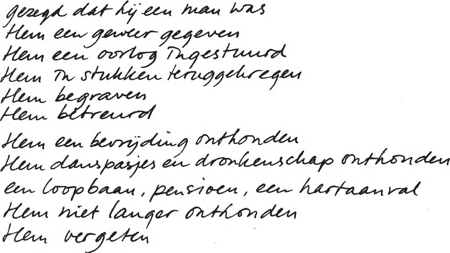 gezegd dat hij een man was
Hem een geweer gegeven
Hem een oorlog ingestuurd
Hem in stukken teruggekregen
Hem begraven
Hem betreurd
Hem een bevrijding onthouden
Hem danspasjes en dronkenschap onthouden
een loopbaan, pensioen, een hartaanval
Hem niet langer onthouden
Hem vergeten